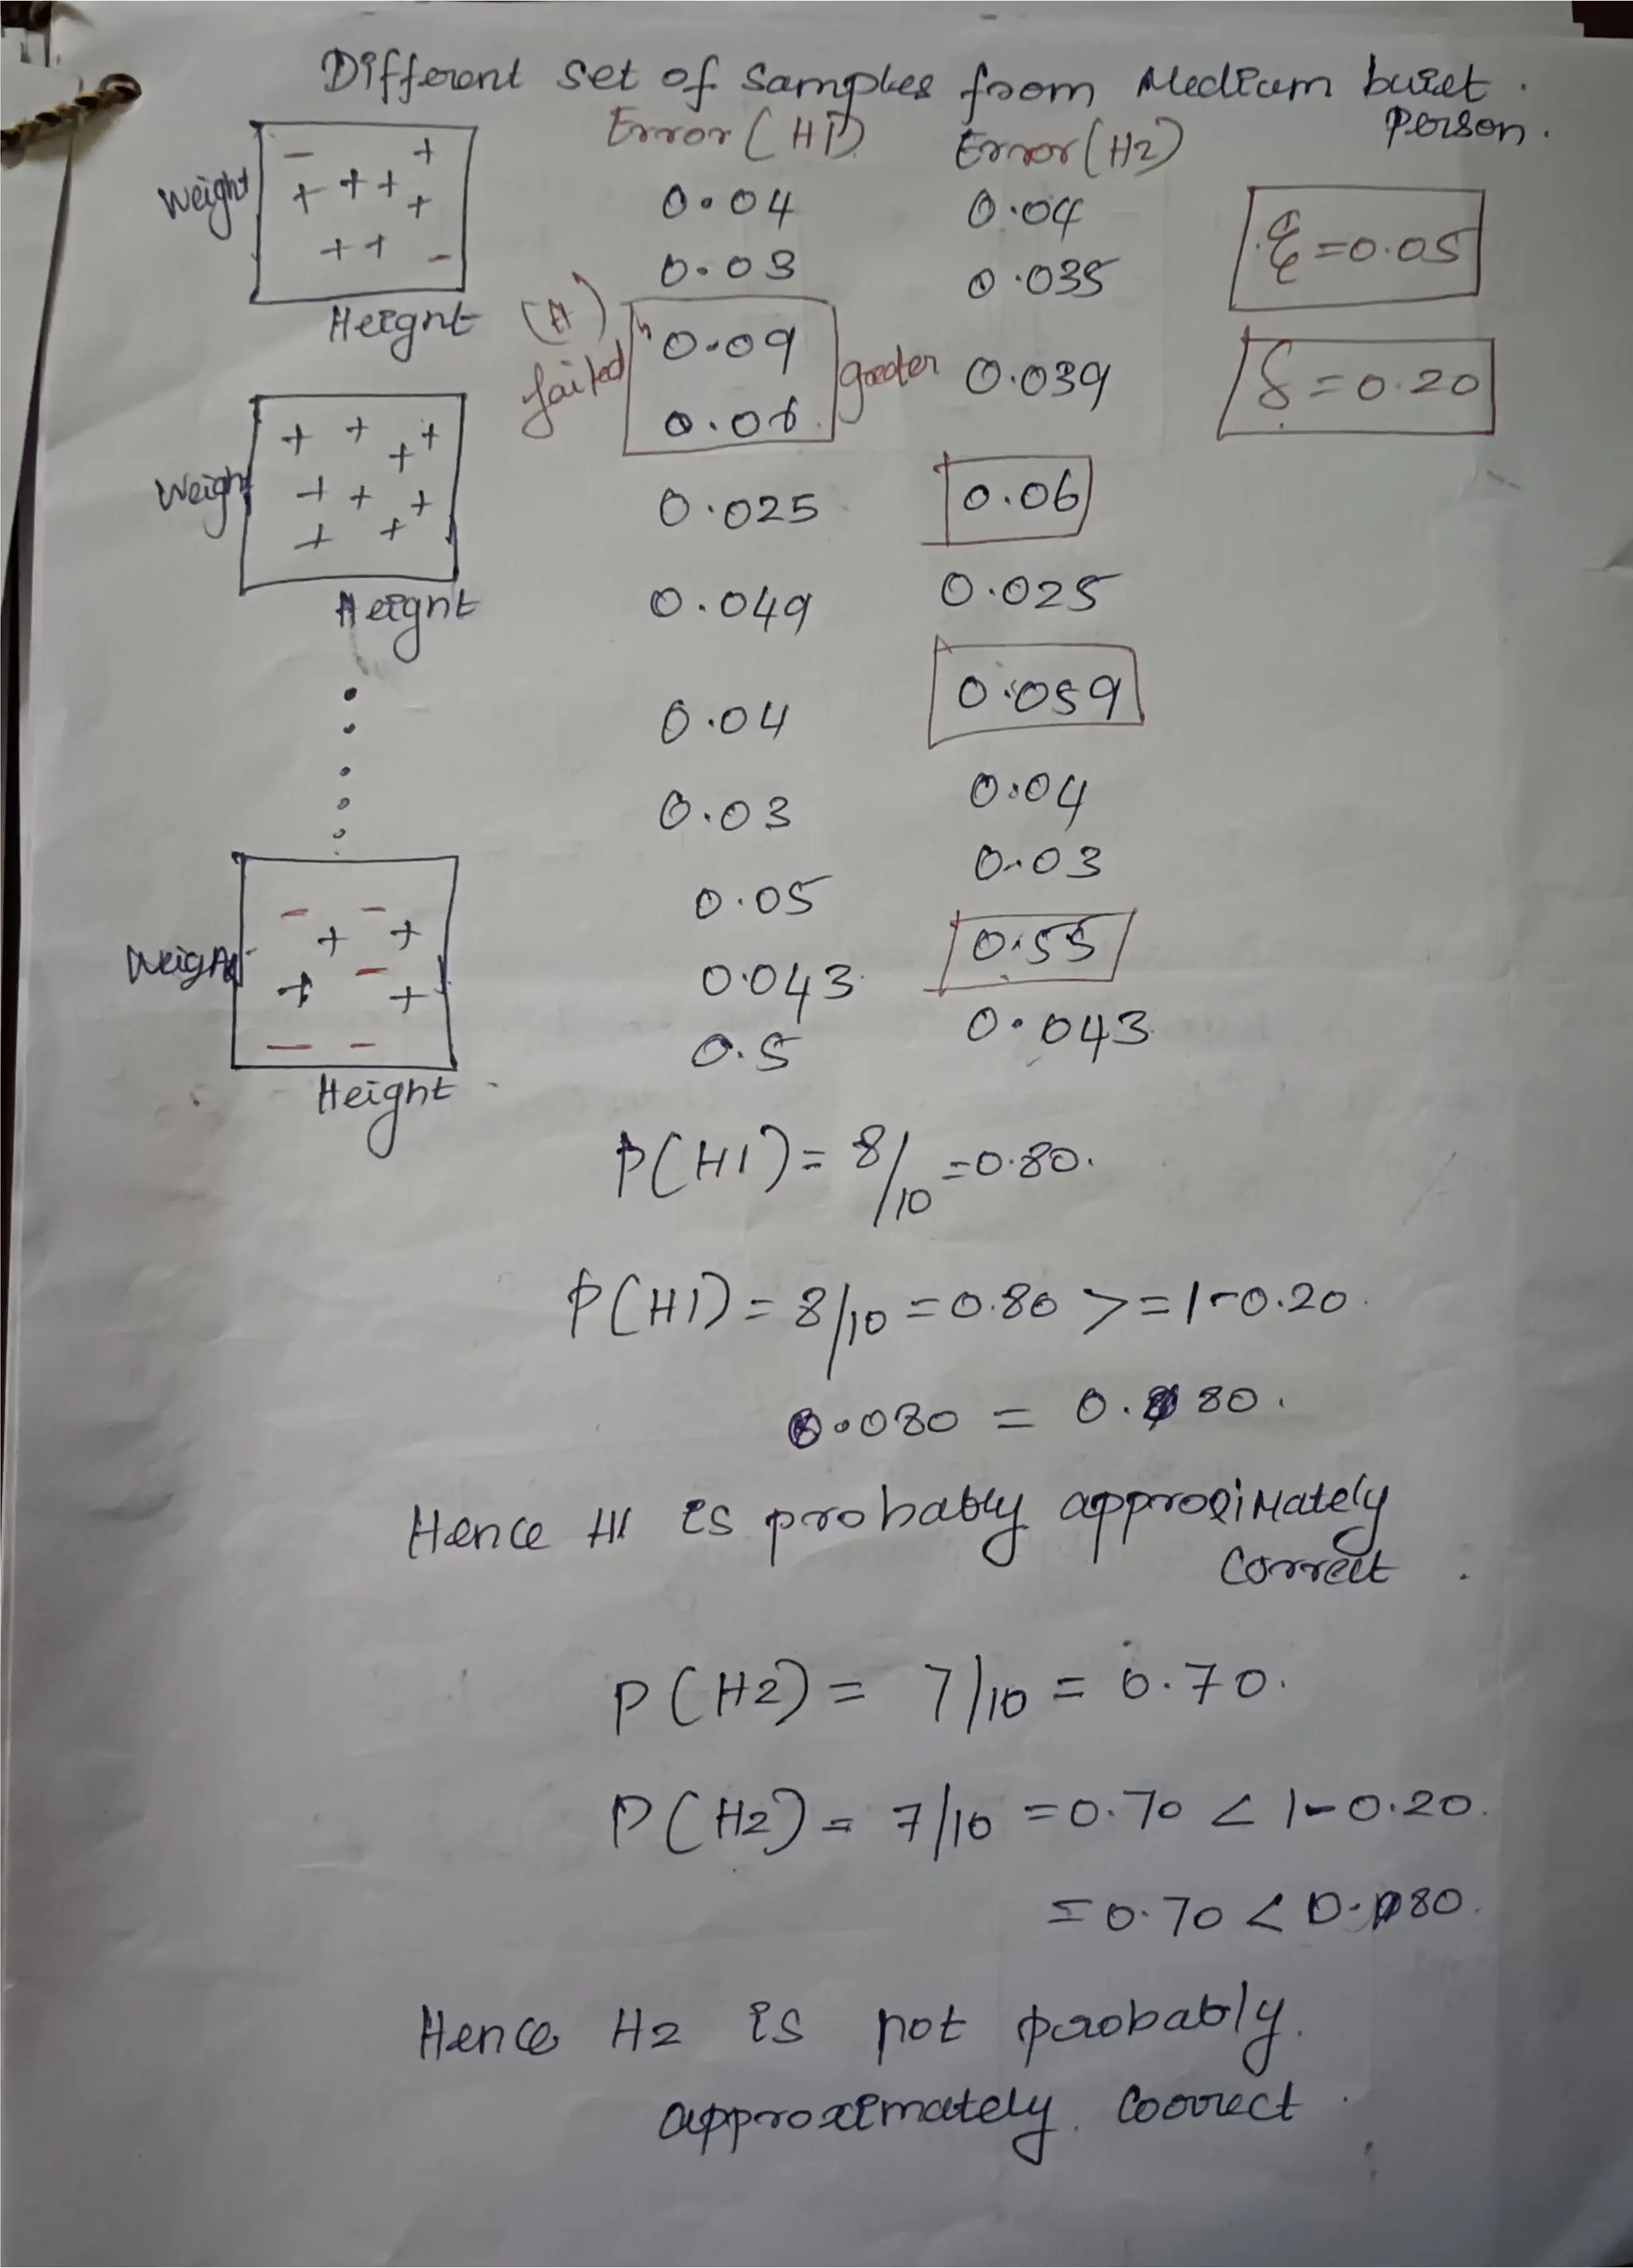 Different set of Samples from Medium built Person.
Error (H1) Error (H2)
Weight
Height
0.04 0.04
0.03 0.035
ξ = 0.05
(H) failed 0.09 0.06 greater 0.039
δ = 0.20
Weight
Height
0.025 0.06
0.049 0.025
0.04 0.059
0.03 0.04
0.05 0.03
0.043 0.55
0.5 0.043
Weight
Height
P(H1) = 8/10 = 0.80.
P(H1) = 8/10 = 0.80 >= 1-0.20.
0.080 = 0.80.
Hence H1 is probably approximately
correct.
P(H2) = 7/10 = 0.70.
P(H2) = 7/10 = 0.70 < 1-0.20.
= 0.70 < 0.80.
Hence H2 is not probably.
approximately. Coorect.